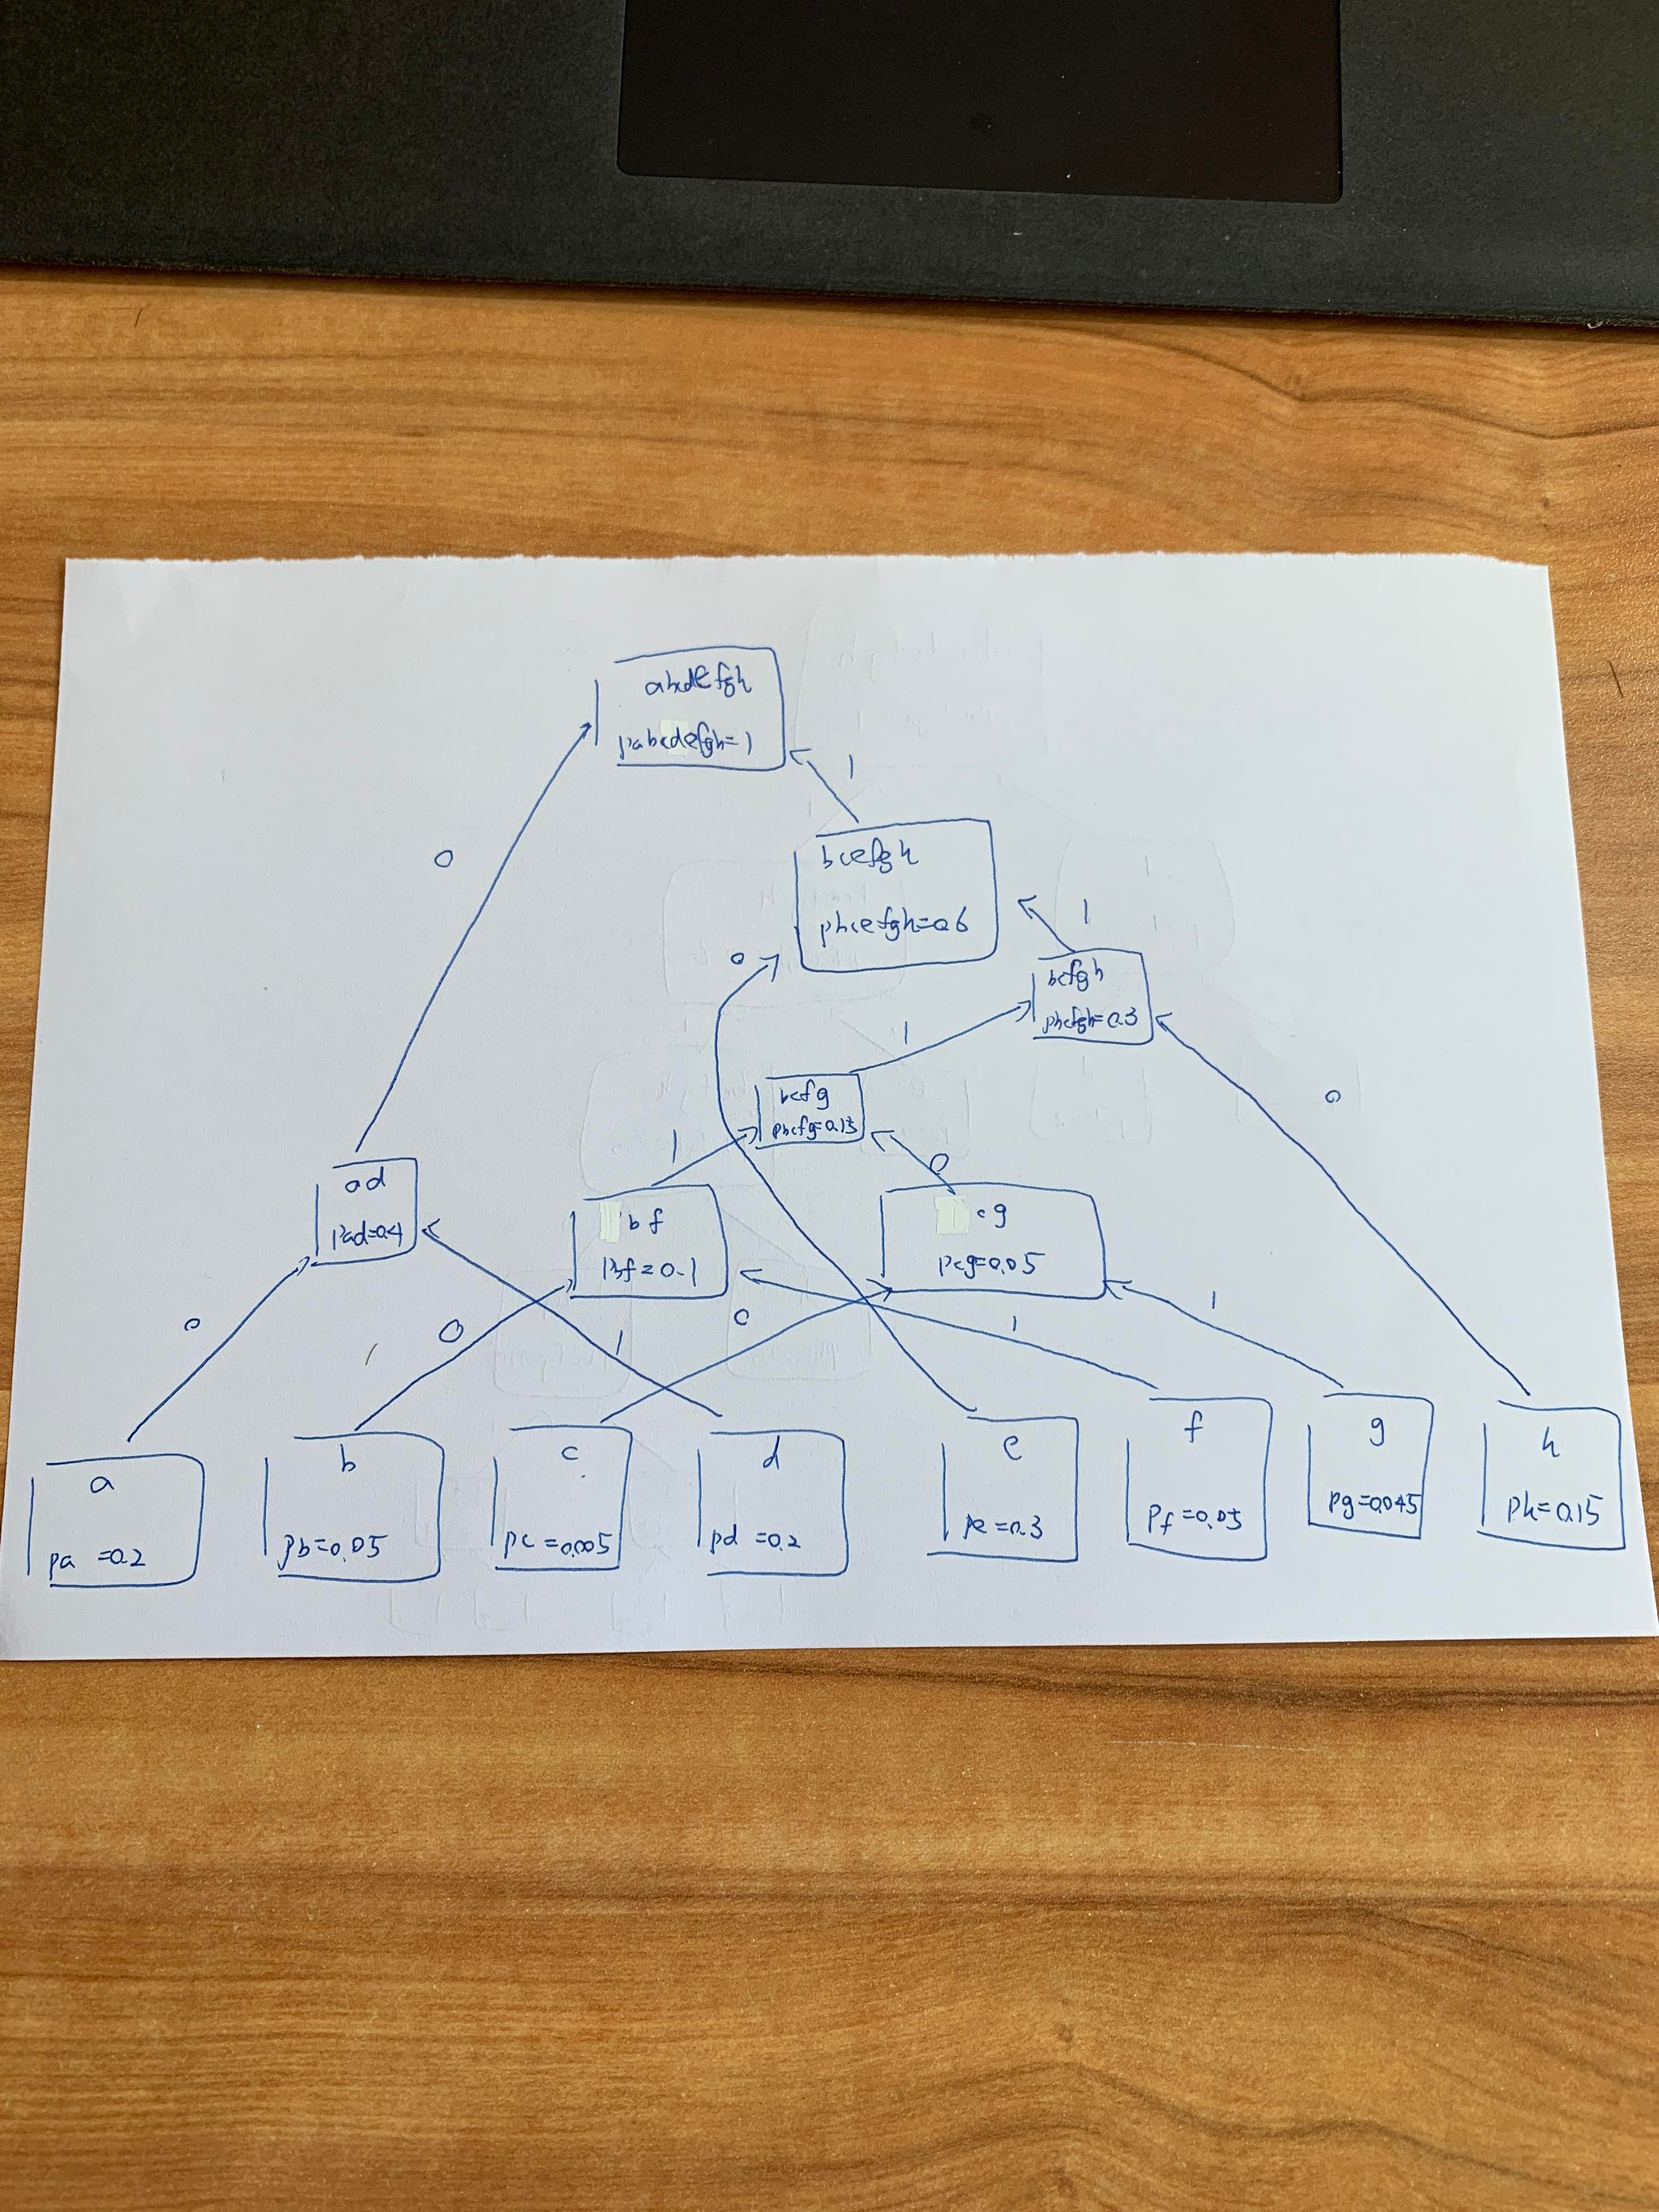 abcdefgh
pabcdefgh=1
0
1
bcefgh
pbcefgh=0.6
0
1
bcfgh
pbcfgh=0.3
1
0
bcfg
pbcfg=0.15
1
0
ad
pad=0.4
bf
pbf=0.1
cg
pcg=0.05
0
0
1
0
1
1
a
pa =0.2
b
pb=0.05
c
pc =0.005
d
pd =0.2
e
pe =0.3
f
pf =0.05
g
pg=0.045
h
ph=0.15